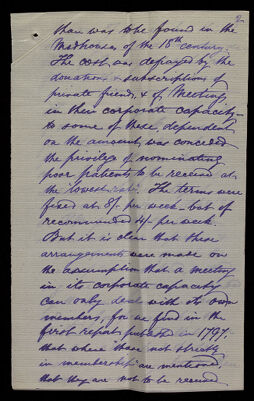 2
than was to be found in the
Madhouses of the 18th century.
The cost was defrayed by the
donations & subscriptions of
private friends, & of Meetings,
in their corporate capacity –
to some of these, dependent
on the amount, was conceded
the privilege of nominating
poor patients to be received at
the lowest rate. The terms were
fixed at 8/- per week but if
recommended 4/- per week.
But it is clear that these
arrangements were made on
the assumption that a meeting
in its corporate capacity
can only deal with its own
members, for we find in the
first report published in 1797,
that where those not strictly
in membership are mentioned,
that they are not to be received